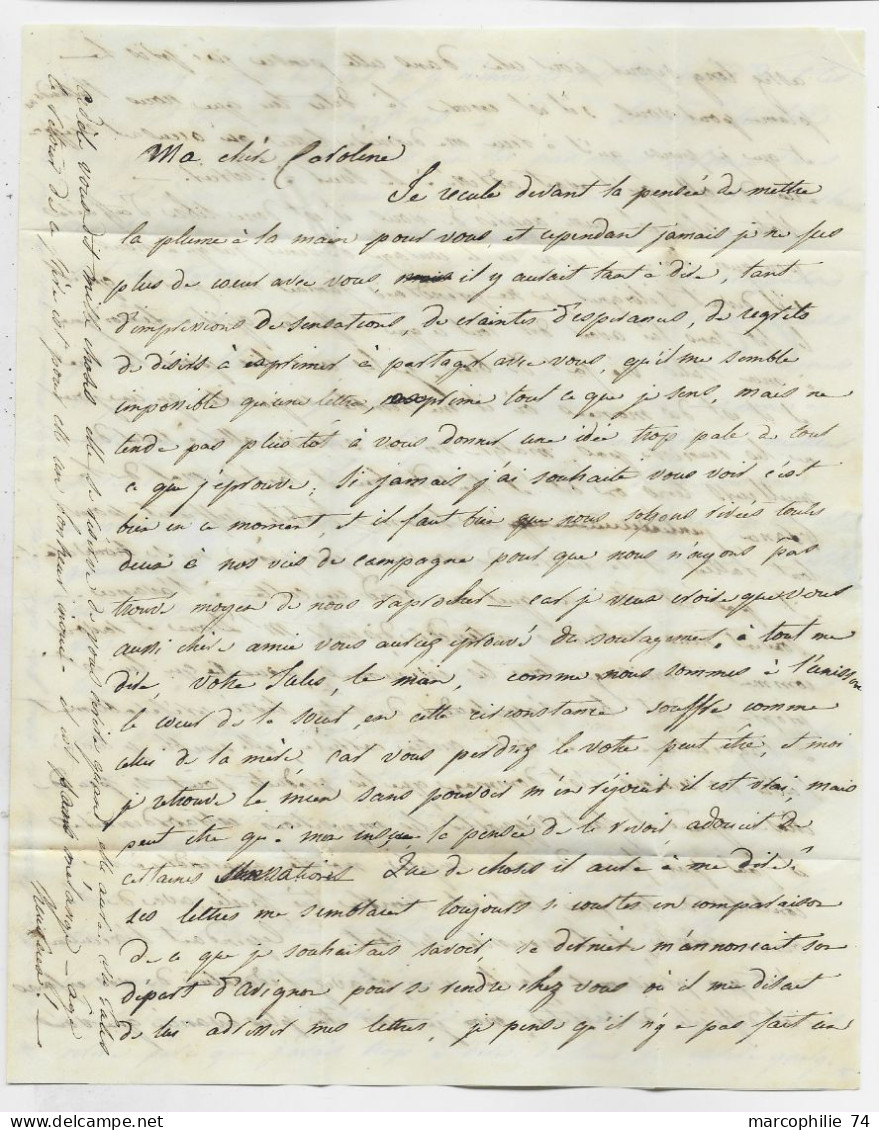 Ma chère Caroline
Je recule devant la pensée de mettre
la plume à la main pour vous, et cependant jamais je ne fus
plus de coeur avec vous, il y aurait tant à dire, tant
d'impressions de sensations, de craintes d'esperances, de regrets
de désirs à exprimer à partager avec vous, qu'il me semble
impossible qu'une lettre, exprime tout ce que je sens, mais ne
tende pas plus tôt à vous donner une idée trop pale de tout
ce que j'éprouve; Si jamais j'ai souhaité vous voir c'est
bien en ce moment, et il faut bien que nous soyons rivées toutes
deux à nos vies de campagne pour que nous n'ayons pas
trouvé moyen de nous raprocher — car je veux croire que vous
aussi chère amie vous auriez éprouvé du soulagement, à tout me
dire, votre Jules, le mien, comme nous sommes à l'unisson
le coeur de la soeur, en cette circonstance souffre comme
celui de la mère, car vous perdrez le votre peut être, et moi
je retrouve le mien sans pouvoir m'en rejouir il est vrai, mais
peut être qu'à mon insçue la pensée de le revoir adoucit de
certaines sensations Que de choses il aura à me dire!
ses lettres me semblaient toujours si courtes en comparaison
de ce que je souhaitais savoir, sa dernière m'annonçait son
départ d'Avignon pour se rendre chez vous où il me disait
de lui adresser mes lettres, je pense qu'il n'y a pas fait un
vous dit mille choses elle se réserve de vous écrire quand elle aura vu Jules
le retour de ce frère est pour elle un bonheur inoui — il est sans mélange —
marcophilie 74